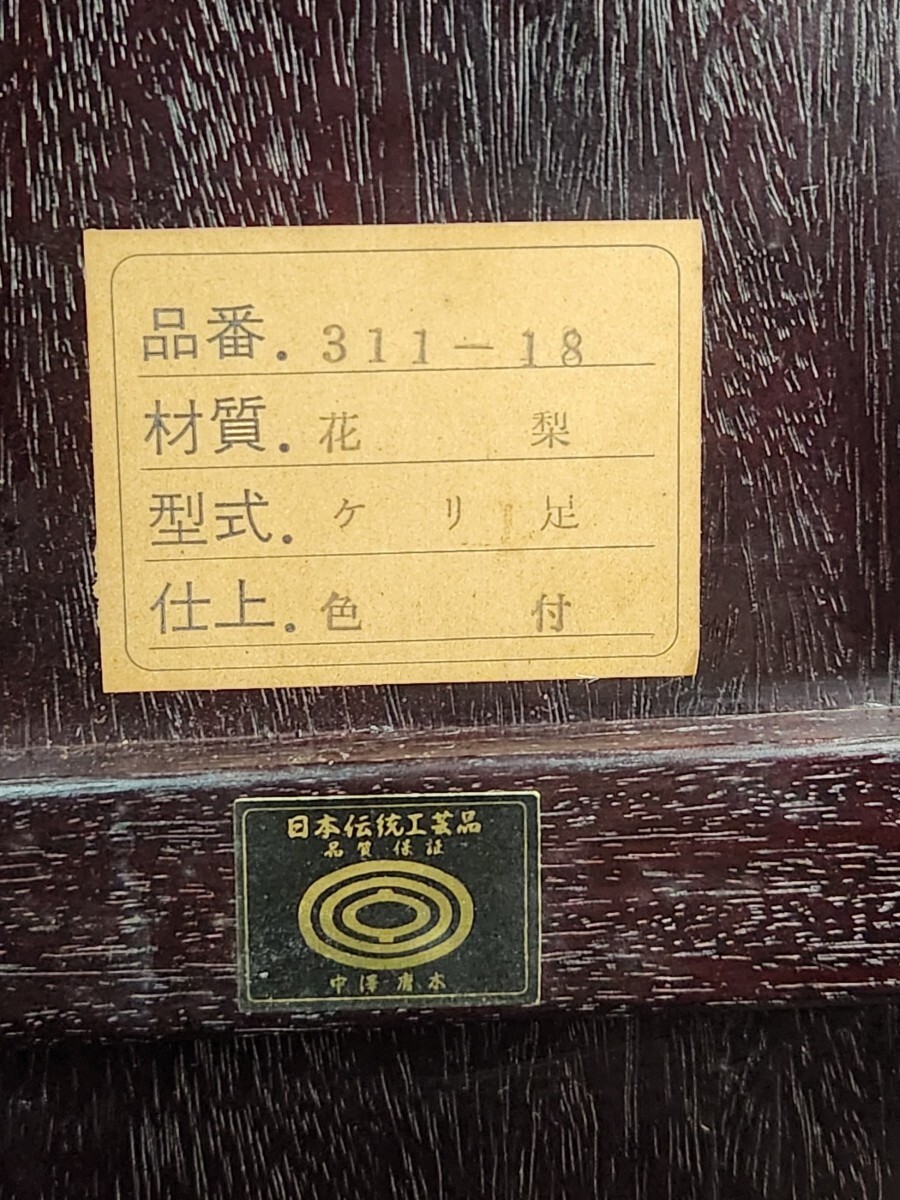 品番. 311-18
材質. 花 梨
型式. ケ リ 足
仕上. 色 付
日本伝統工芸品
品質保証
中澤唐木